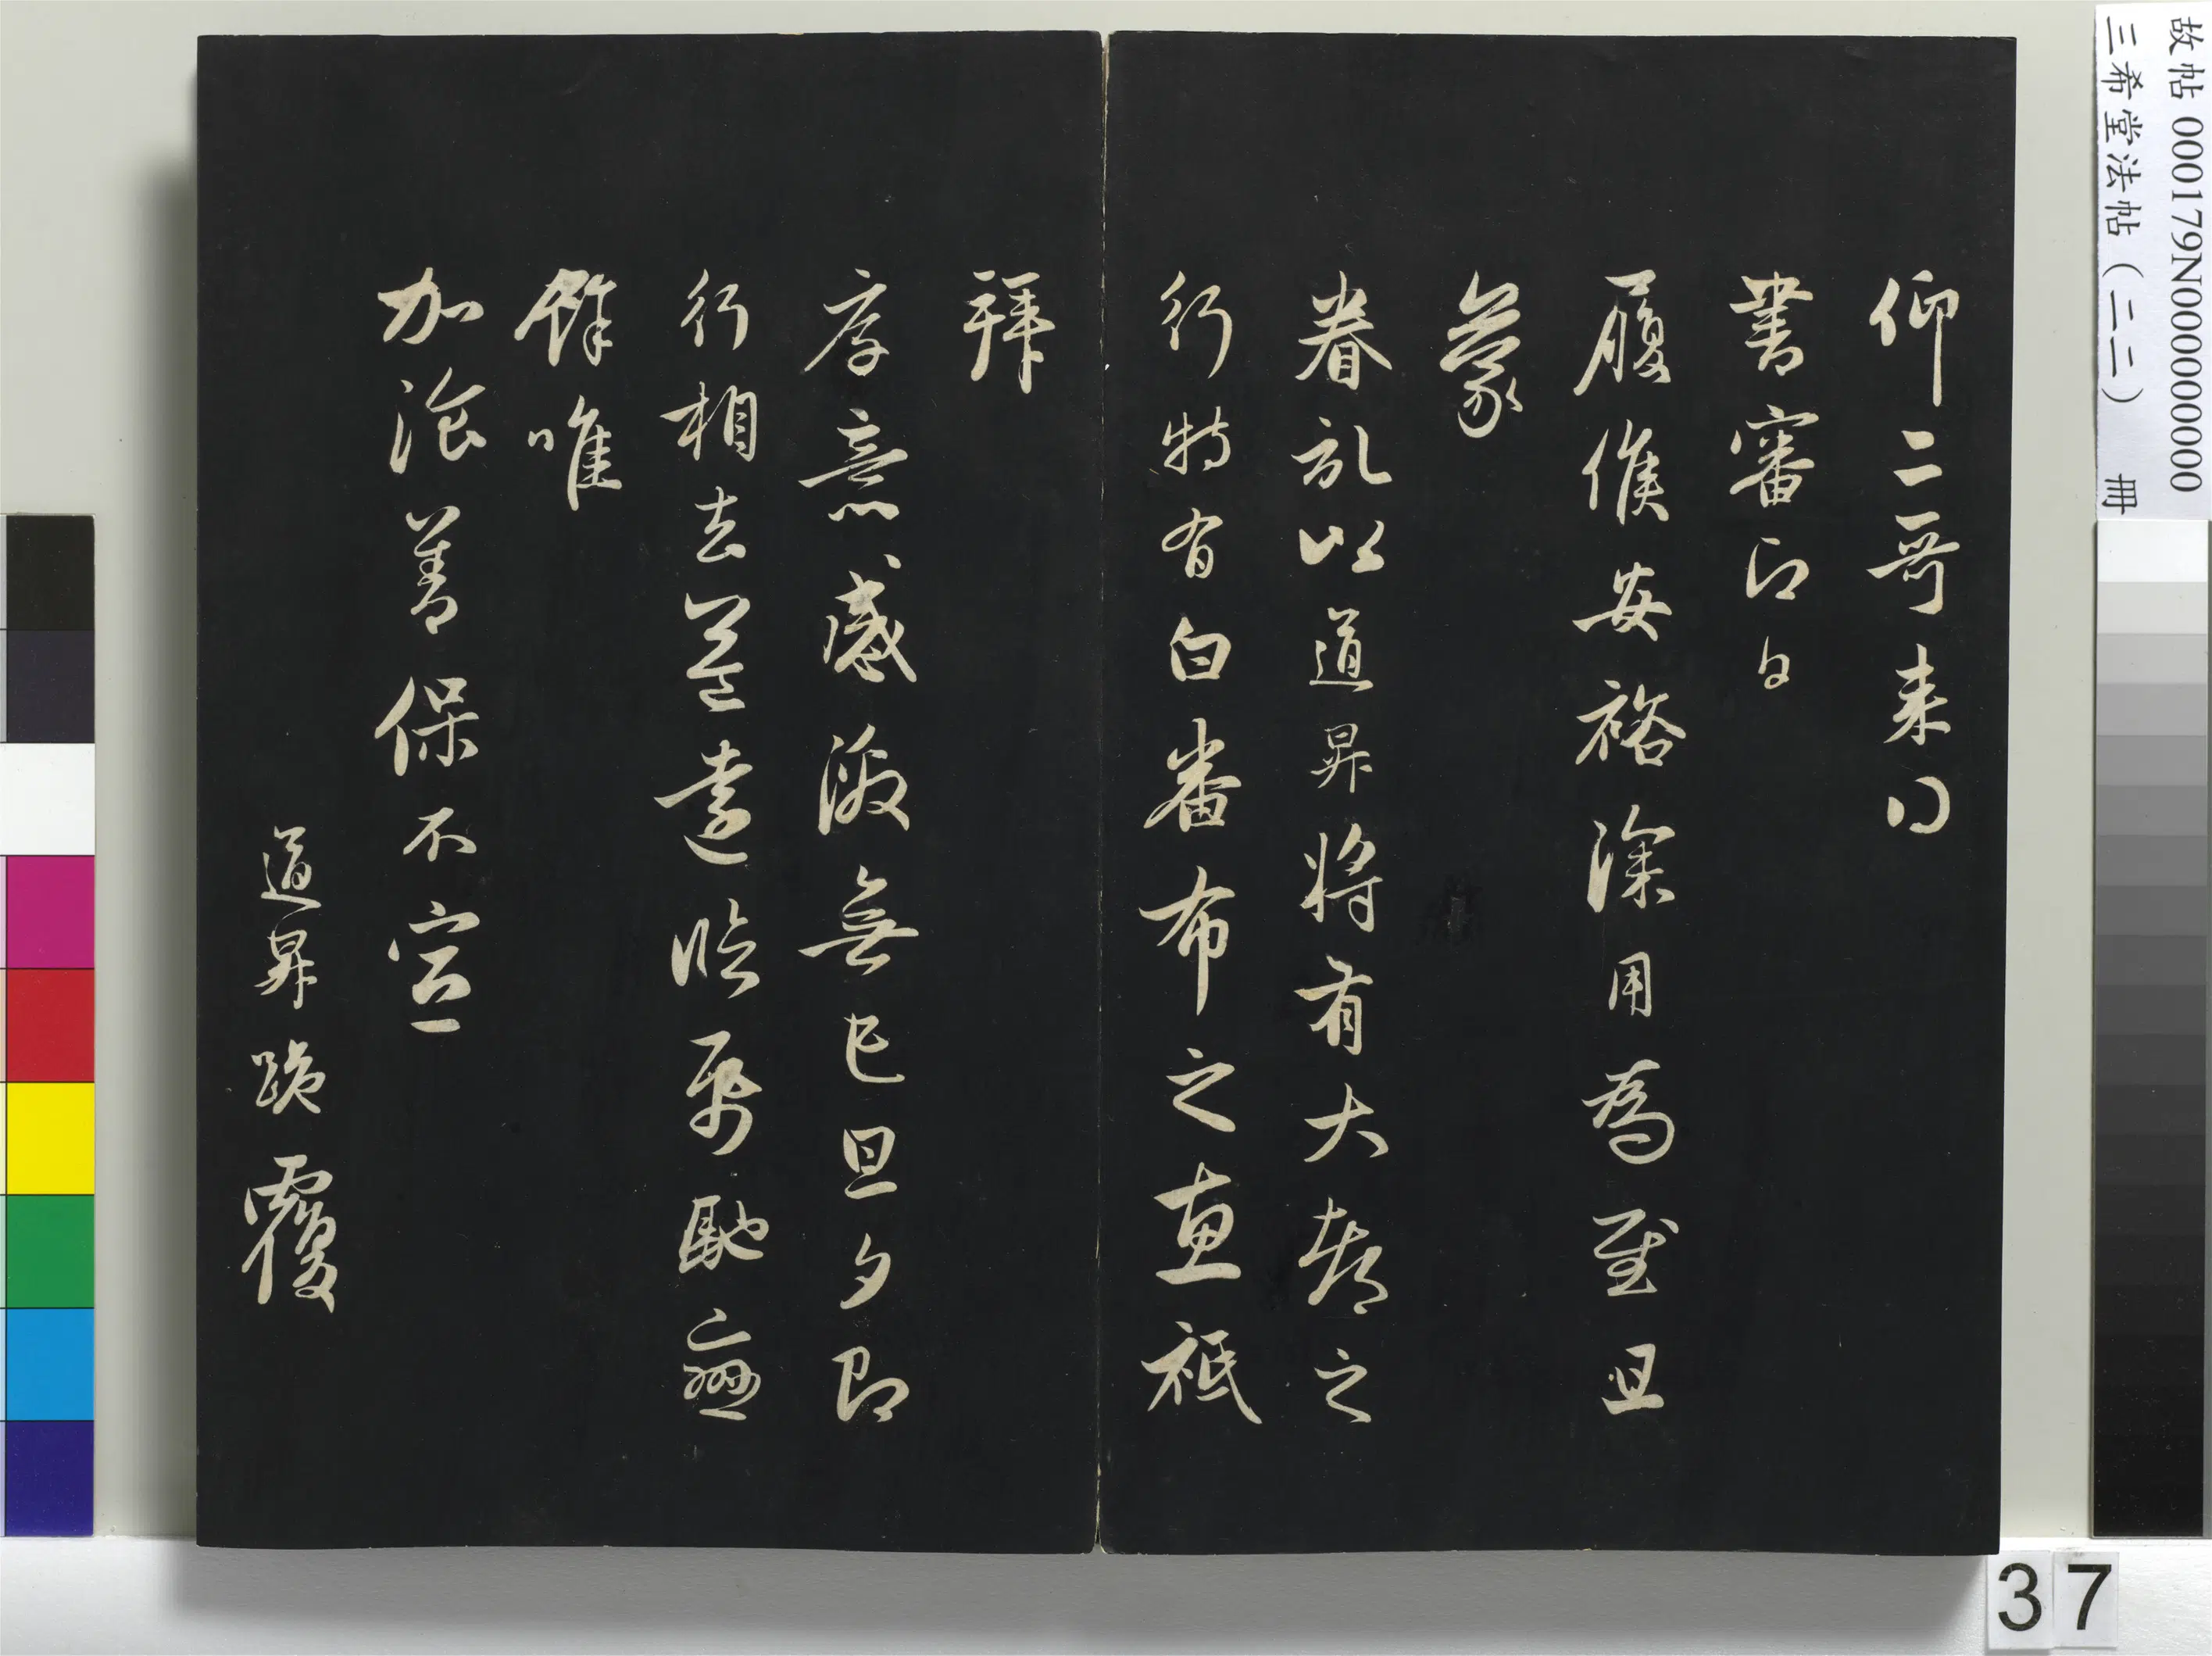 仰二哥来得
書審即日
履候安裕深用為慰且
蒙
眷記以道昇將有大都之
行特有白番布之惠祗
拜
厚意感激無已旦夕即
行相去益遠臨紙馳
餘唯
加飡善保不宣
道昇跪覆
故帖 000179N000000000
三希堂法帖（二二） 冊
37